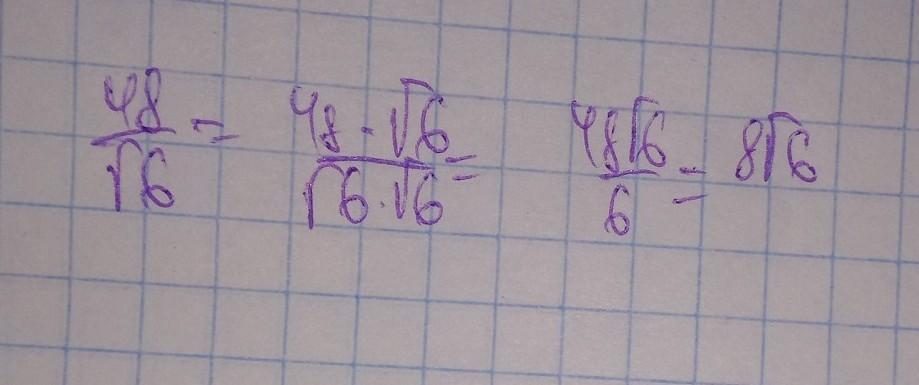 48/√6 = 48·√6/√6·√6 = 48√6/6 = 8√6